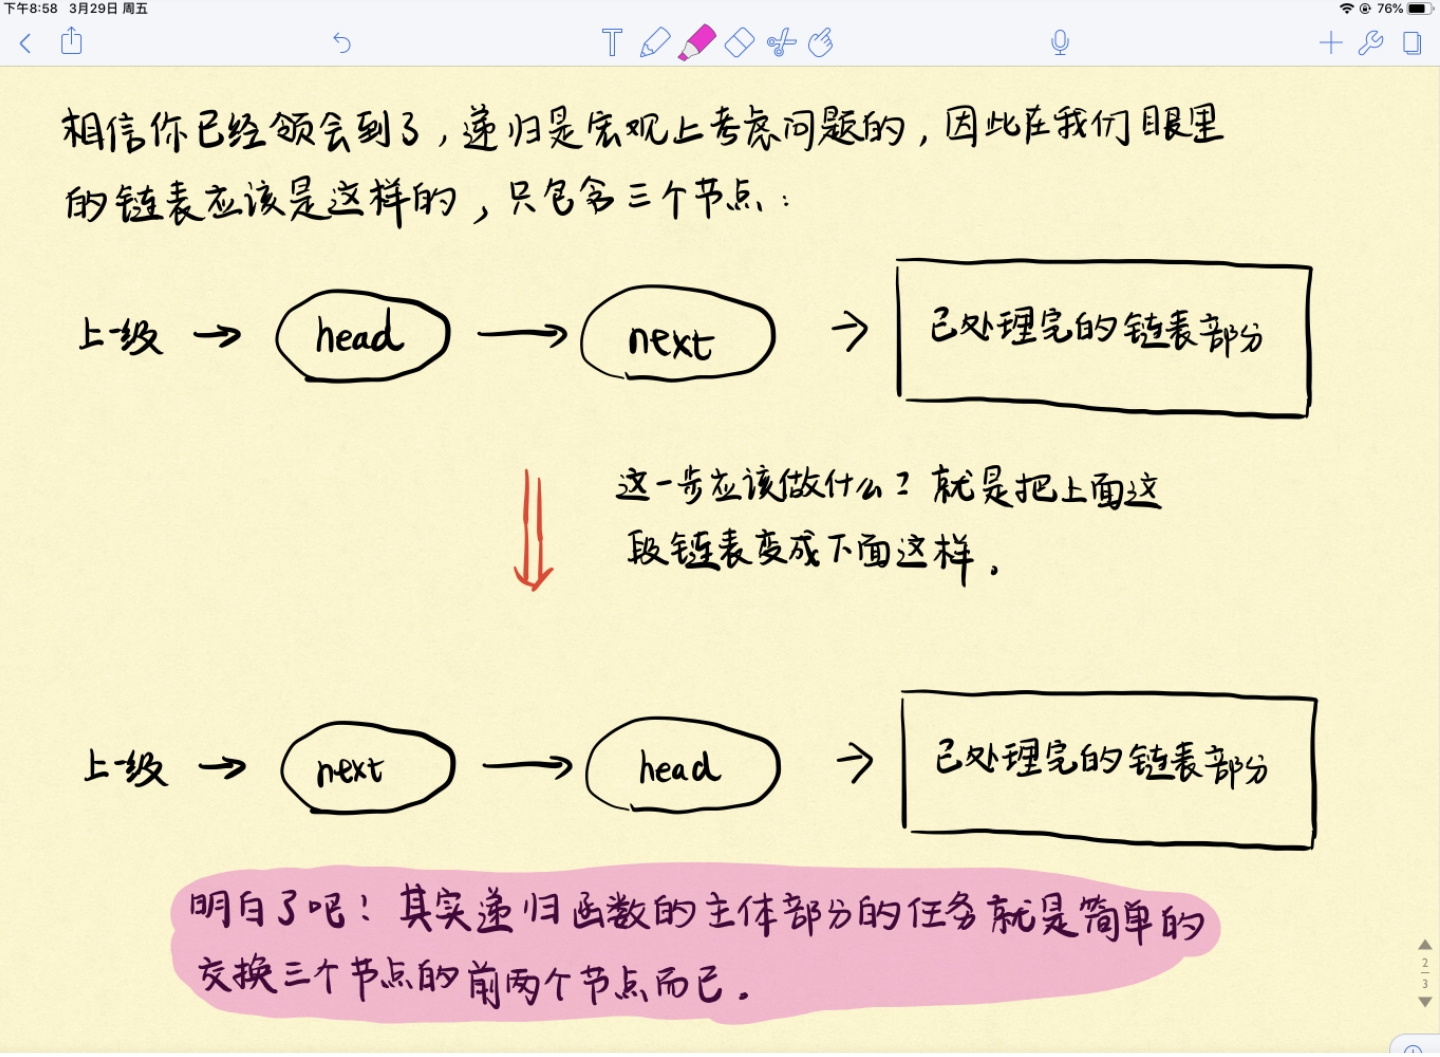 下午8:58 3月29日 周五
76%
T
相信你已经领会到了,递归是宏观上考虑问题的,因此在我们眼里
的链表应该是这样的,只包含三个节点:
上一级 → head → next → 已处理完的链表部分
这一步应该做什么?就是把上面这
段链表变成下面这样.
上一级 → next → head → 已处理完的链表部分
明白了吧!其实递归函数的主体部分的任务就是简单的
交换三个节点的前两个节点而已.
2
3